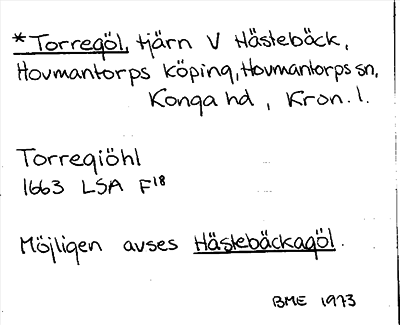 *Torregöl, tjärn V Hästebäck,
Hovmantorps köping, Hovmantorps sn,
Konga hd, Kron. l.
Torregiöhl
1663 LSA F18
Möjligen avses Hästebäckagöl.
BME 1973